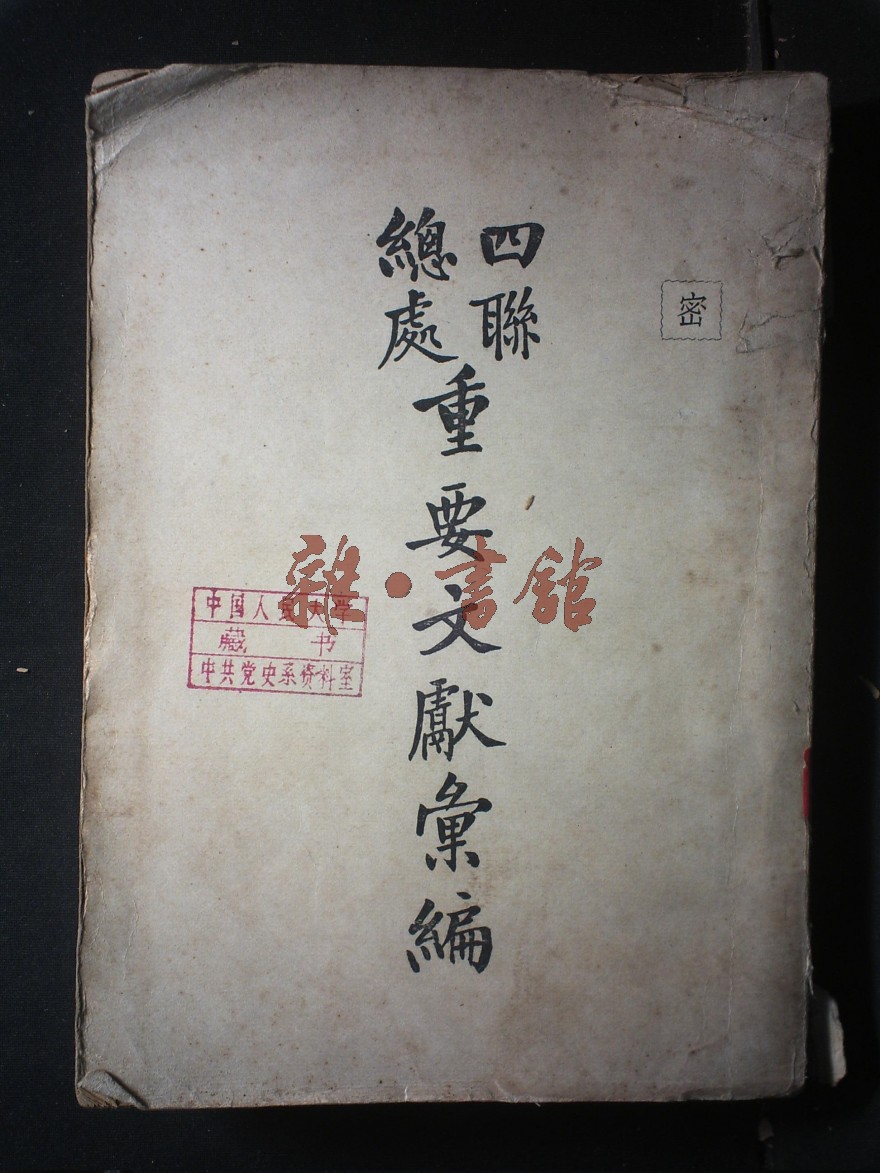 密
四聯
總處
重要文獻彙編
雜·書館
中国人民大学
藏书
中共党史系资料室